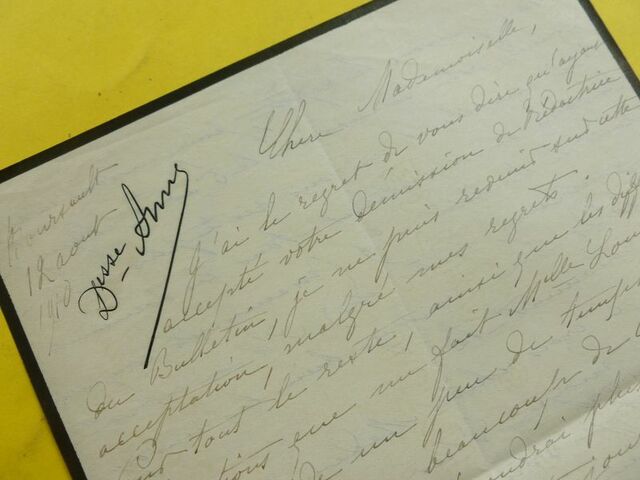 Boursault
12 aout
1910
Dsse Anne
Chère Mademoiselle,
J'ai le regret de vous dire qu'ayant
accepté votre démission de Rédactrice
du Bulletin, je ne puis revenir sur cette
acceptation, malgré mes regrets.
tout le reste, ainsi que les diff
que me fait Melle Lou
de un peu de temps
beaucoup de